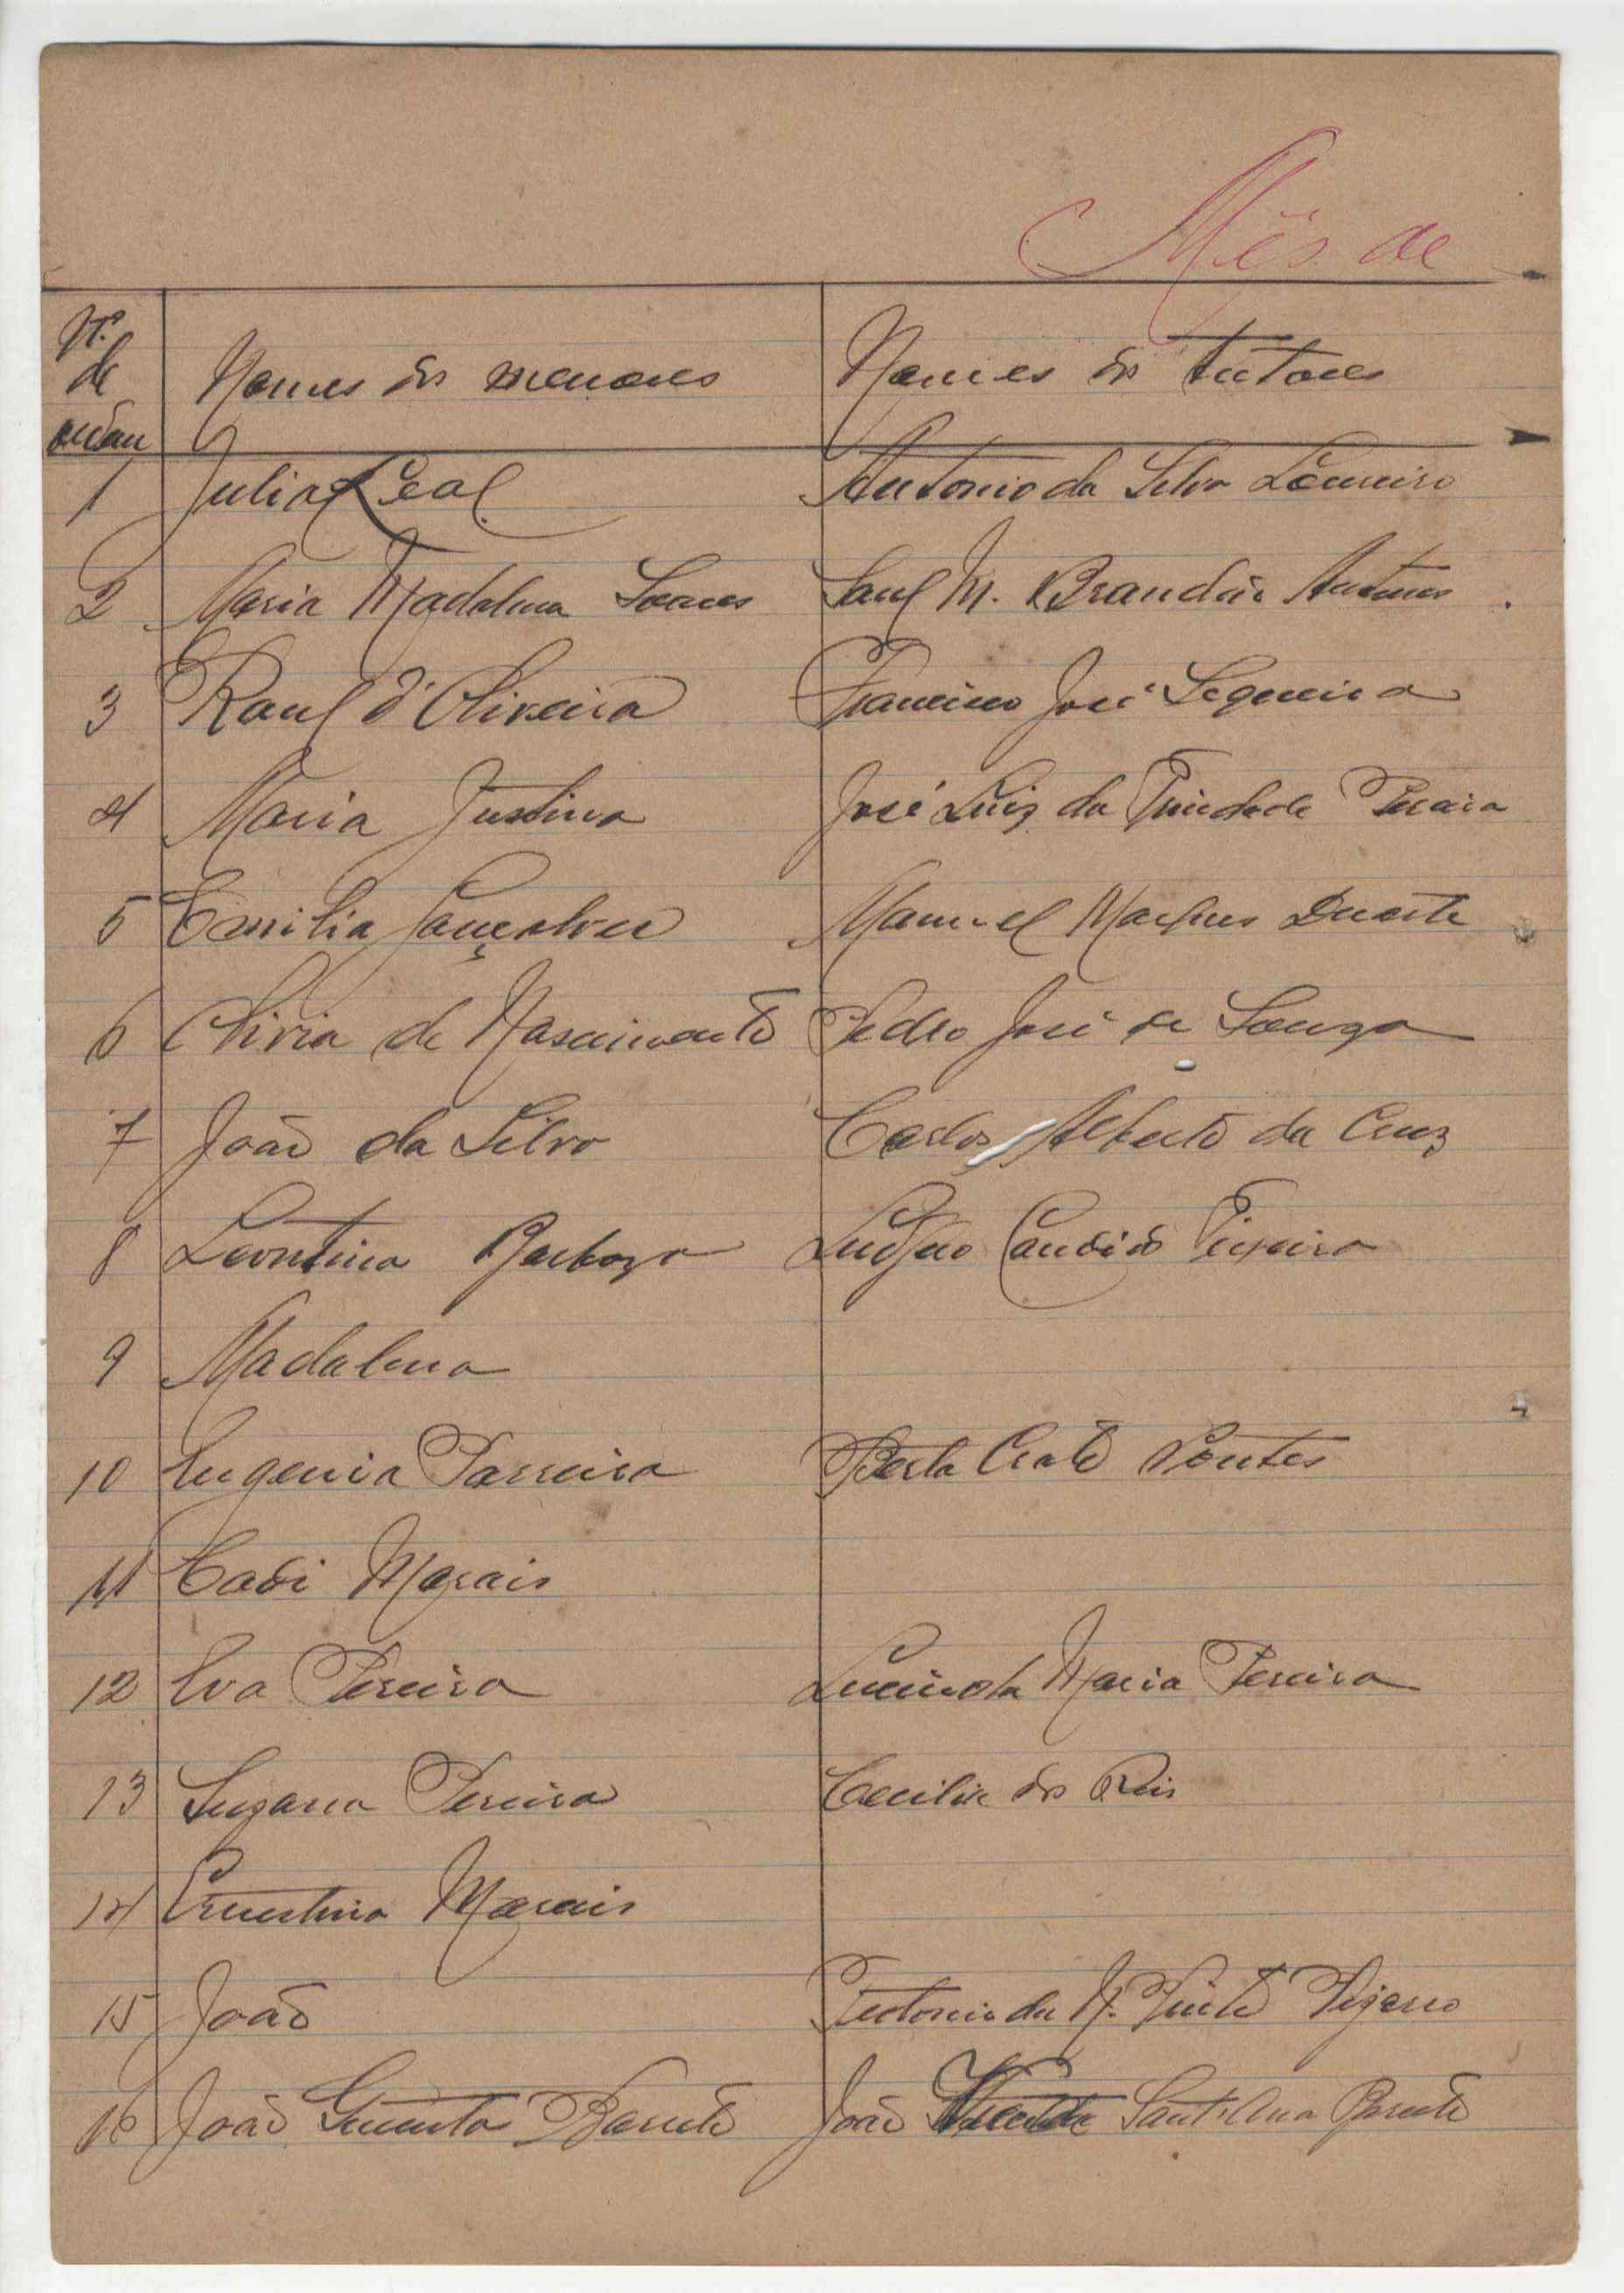 Mês de
Nº
de
ordem
Nomes dos menores
Nomes dos tutores
1 Julia Leal Antonio da Silva Loureiro
2 Maria Madalena Soares Saul M. Brandão Antunes
3 Raul d'Oliveira Francisco José Sequeira
4 Maria Justina José Luiz da Trindade Pereira
5 Emilia Gonçalves Manuel Duarte
6 Olivia de Nascimento Pedro José de Souza
7 João da Silva Carlos Alberto da Cruz
8 Leontina Barboza Candido Teixeira
9 Madalena
10 Eugenia Parreira Berta Crato Pontes
11 Cadi Morais
12 Eva Pereira Lucinda Maria Pereira
13 Suzana Pereira Cecilia dos Reis
14 Ernestina Morais
15 João Teotonio da N. Pinto
16 João Barreto João Sant'Ana Barreto